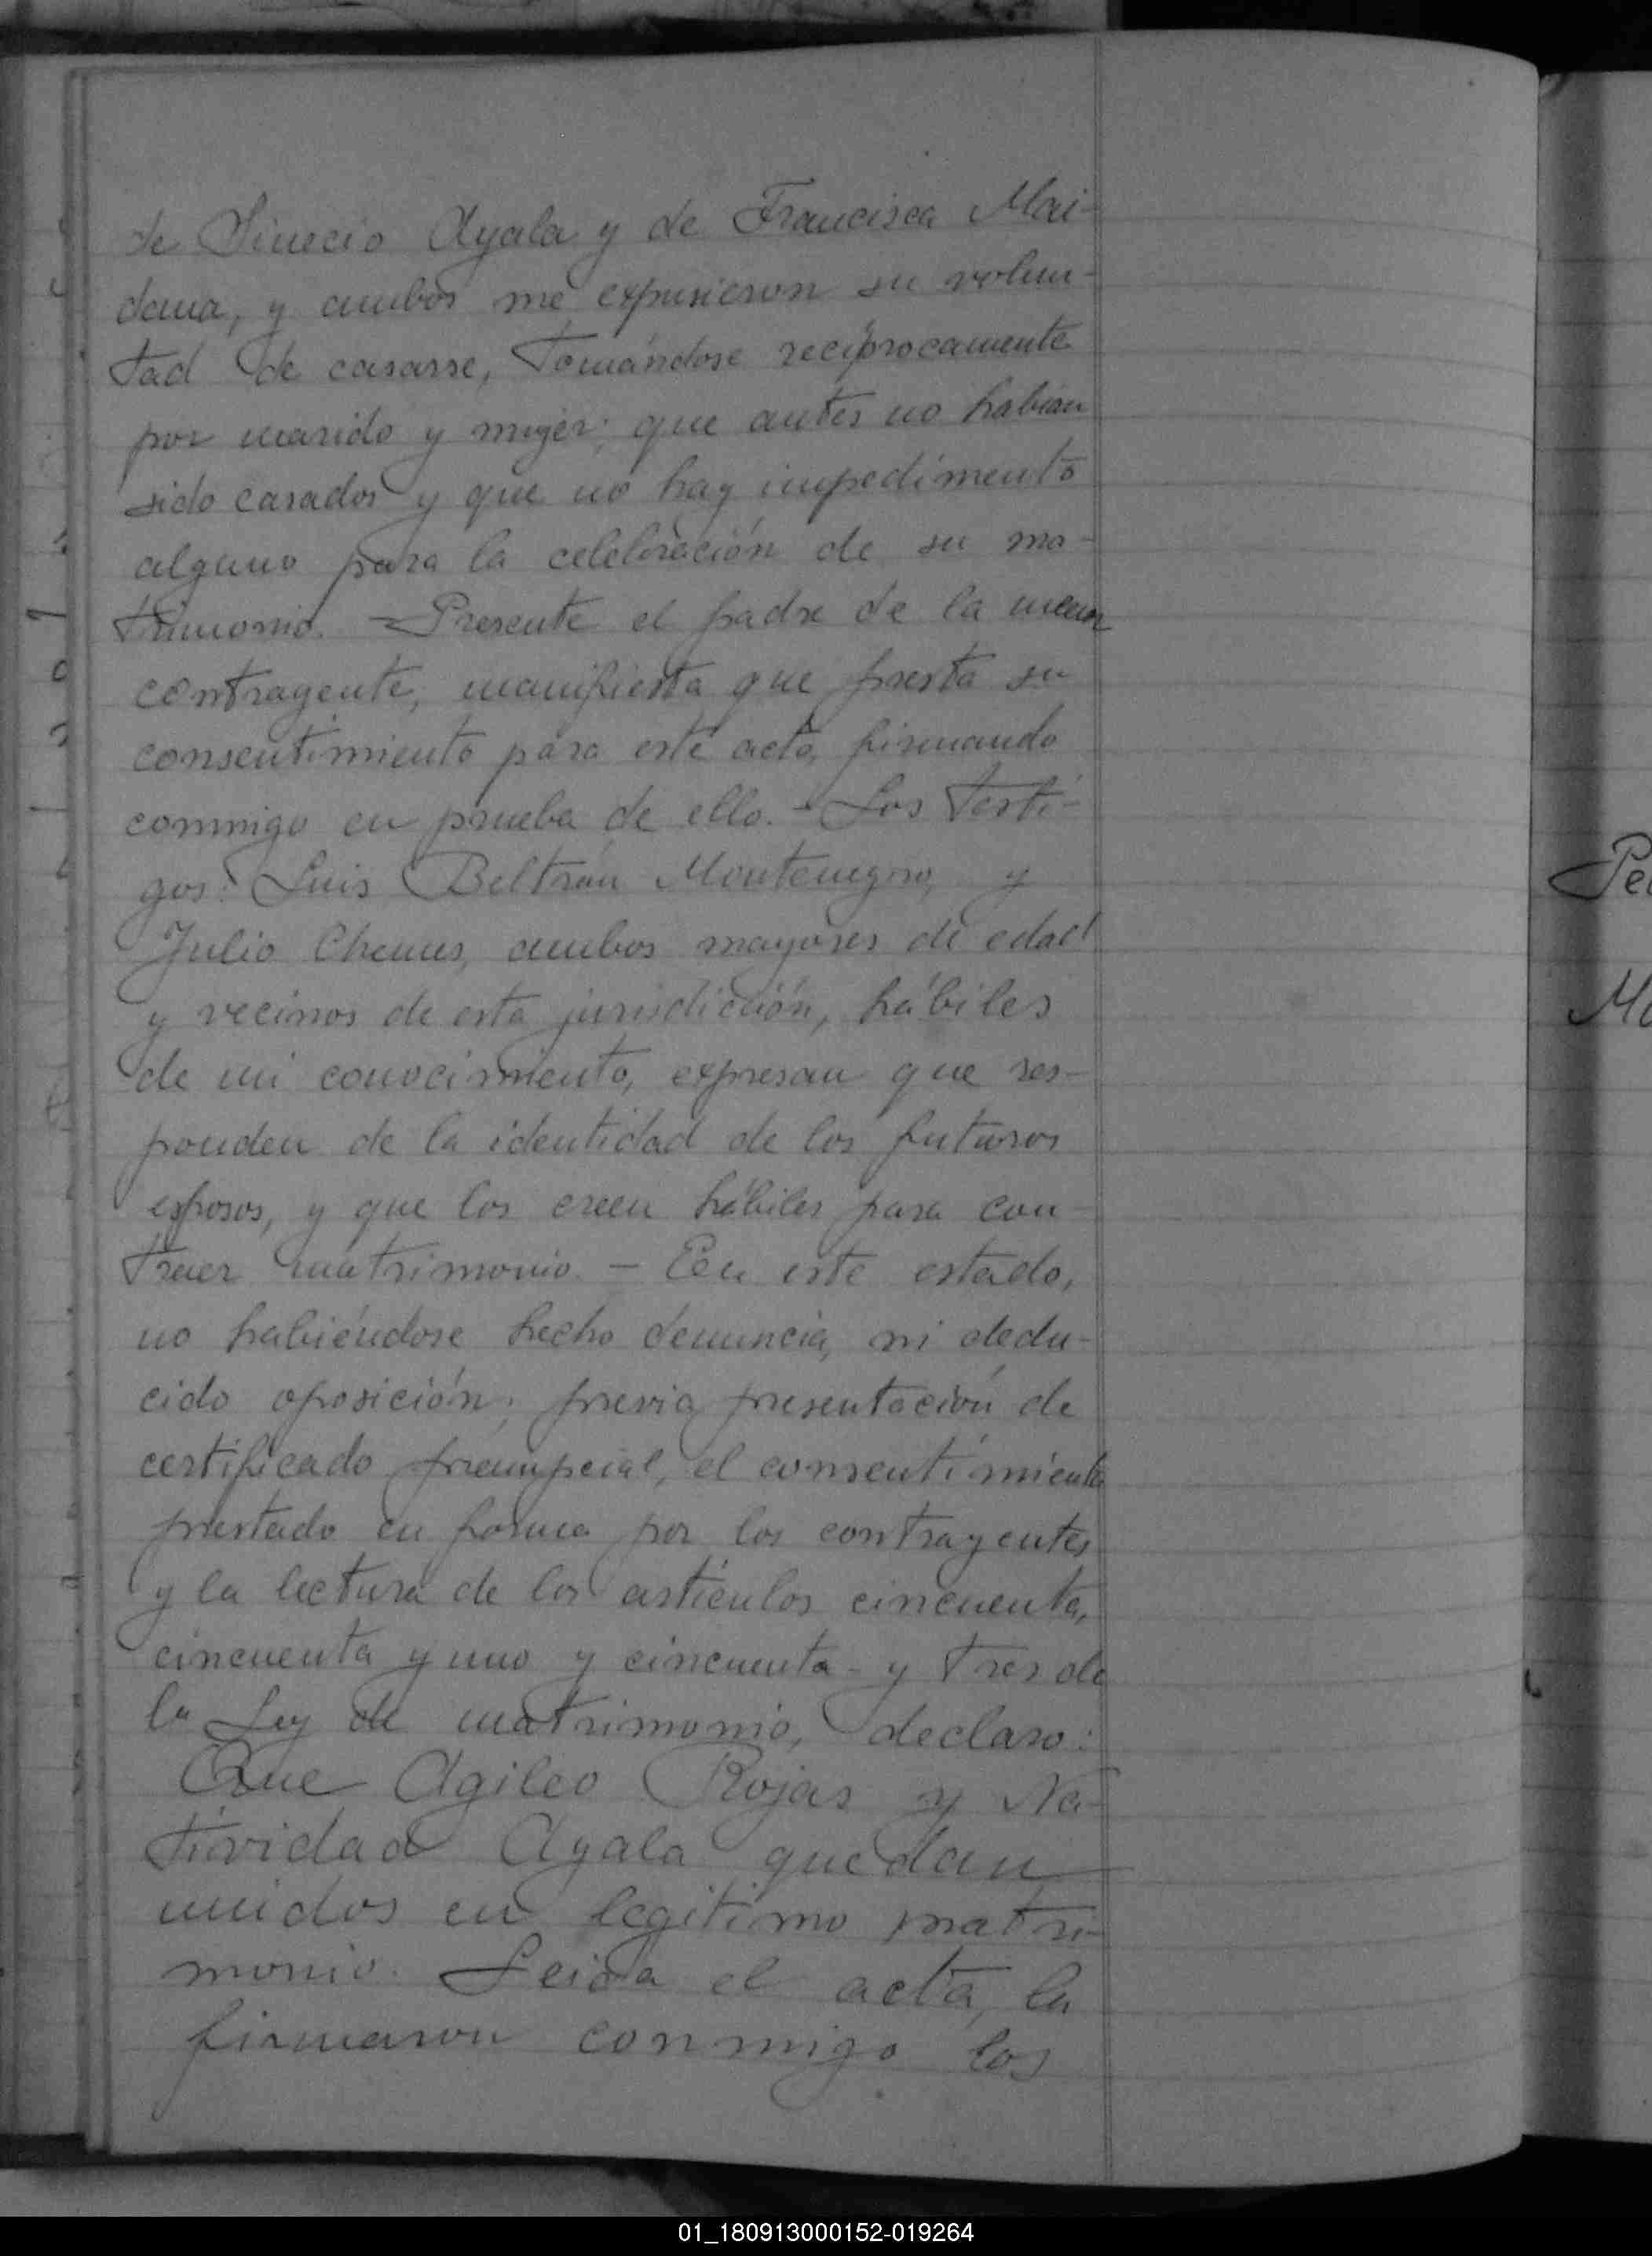 de Sinecio Ayala y de Francisca Mai-
dana, y ambos me expusieron su volun-
tad de casarse, tomándose recíprocamente
por marido y mujer; que antes no habian
sido casados y que no hay impedimento
alguno para la celebración de su ma-
trimonio. - Presente el padre de la menor
contrayente, manifiesta que presta su
consentimiento para este acto, firmando
conmigo en prueba de ello. - Los testi-
gos: Luis Beltrán Montenegro, y
Julio ambos mayores de edad
y vecinos de esta jurisdicción, hábiles
de mi conocimiento, expresan que res-
ponden de la identidad de los futuros
esposos, y que los creen hábiles para con-
traer matrimonio. - En este estado,
no habiéndose hecho denuncia, ni dedu-
cido oposición; previa presentación de
certificado prenupcial, el consentimiento
prestado en forma por los contrayentes,
y la lectura de los artículos cincuenta,
cincuenta y uno y cincuenta - y tres de
la Ley de matrimonio, declaro:
Que Agileo Rojas y Na-
tividad Ayala quedan
unidos en legitimo matri-
monio. Leida el acta, la
firmaron conmigo los
Pe
M
01_180913000152-019264